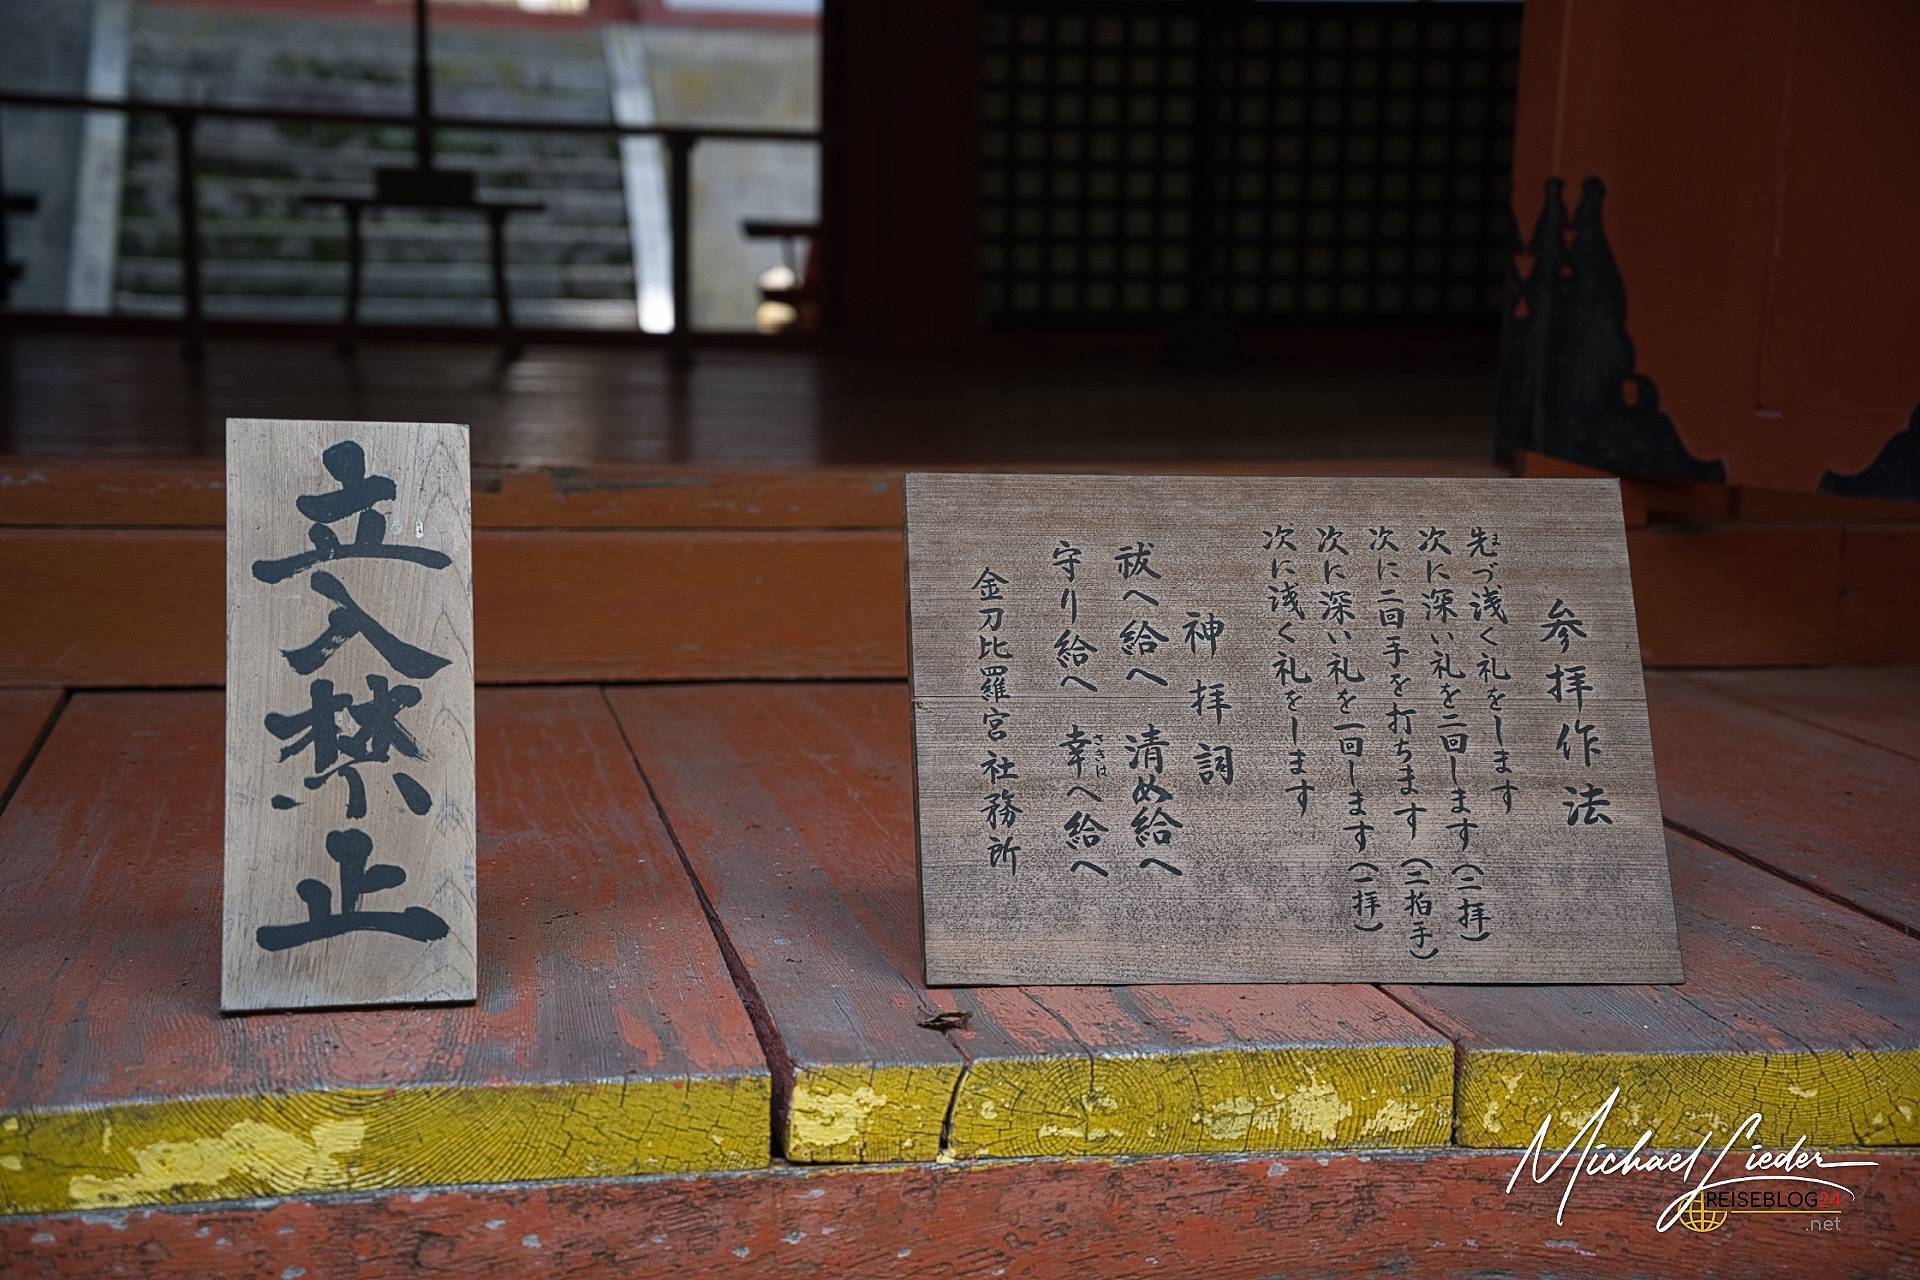 立入禁止
参拝作法
先づ浅く礼をします
ま
次に深い礼を二回します(二拝)
次に二回手を打ちます(二拍手)
次に深い礼を一回します(一拝)
次に浅く礼をします
神拝詞
祓へ給へ 清め給へ
守り給へ 幸へ給へ
さきは
金刀比羅宮社務所
Michael Lieder
REISEBLOG24
.net